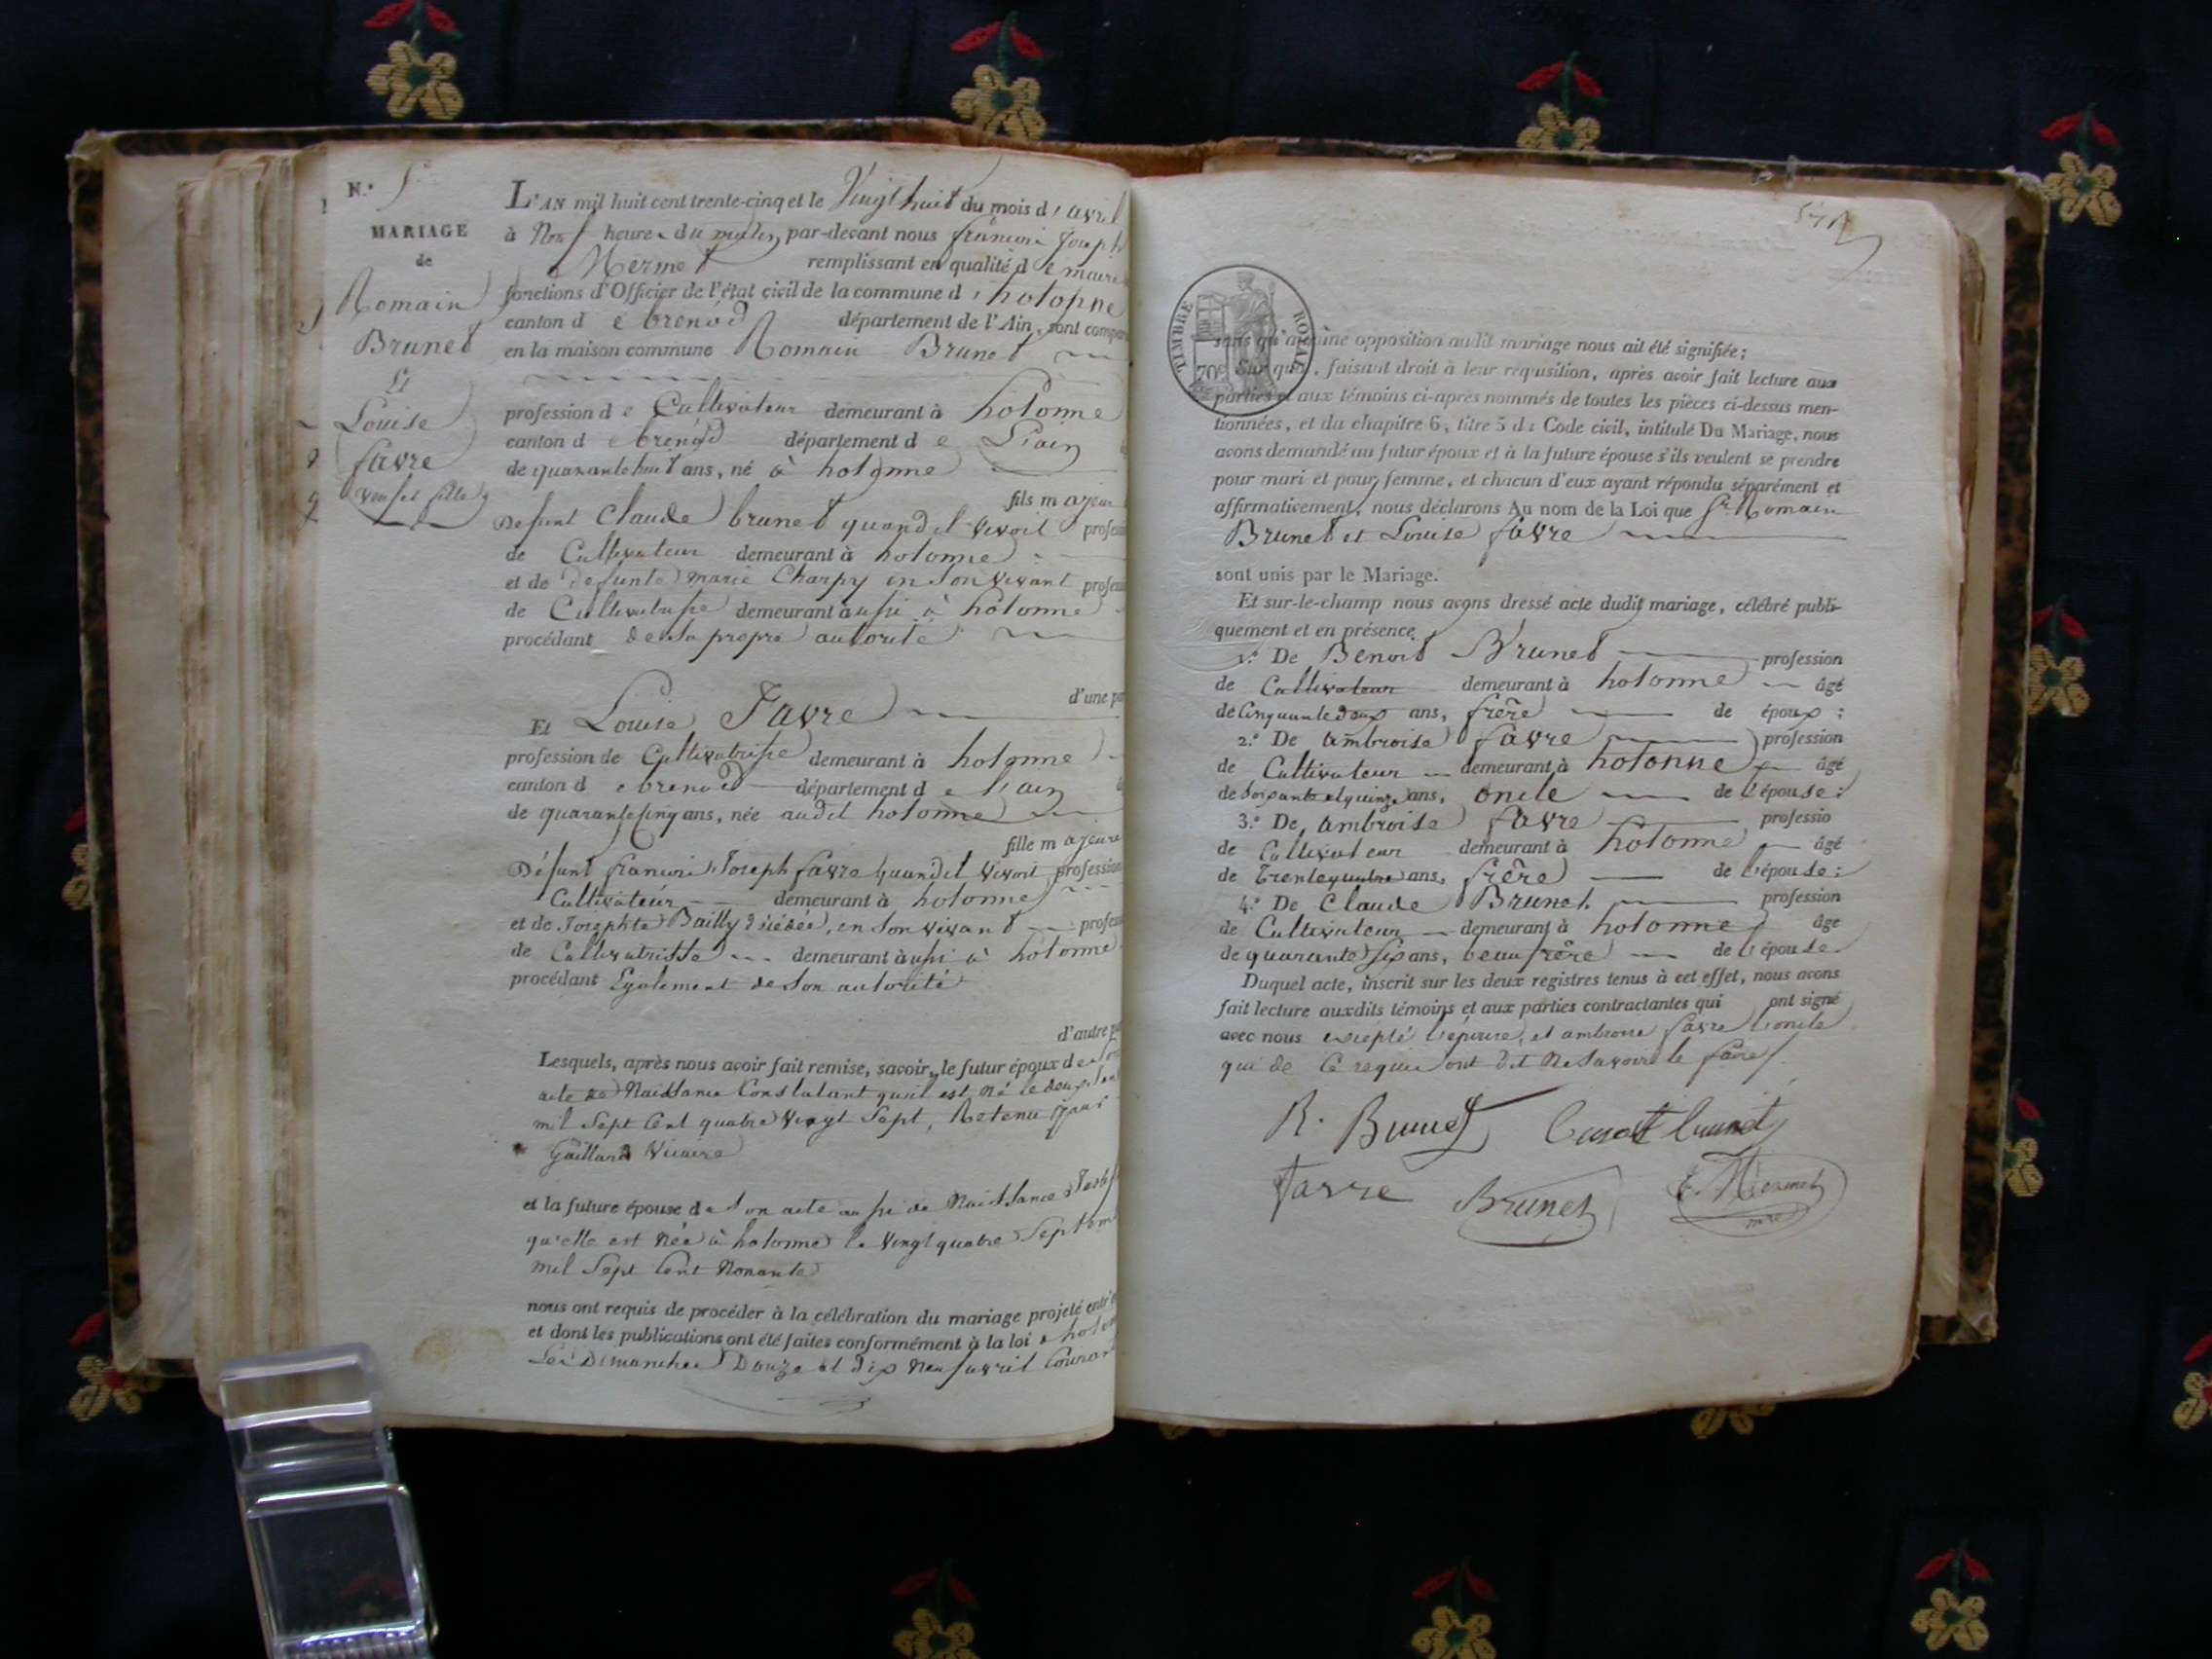 N.º 5
MARIAGE
de
Romain
Brunet
Et
Louise
favre
L'AN mil huit cent trente-cinq et le Vingt huit du mois d'avril
à Neuf heures du matin, par-devant nous françois Joseph
Mermet remplissant en qualité de maire
fonctions d'Officier de l'état civil de la commune d'hotonne
canton de brenod département de l'Ain, sont compar
en la maison commune Romain Brunet
profession de Cultivateur demeurant à hotonne
canton de brenod département de L'ain
de quarante huit ans, né à hotonne
fils majeur
Defunt Claude brunet quand il vivoit profess
de Cultivateur demeurant à hotonne
et de defunte marie Charpy en son vivant profess
de Cultivatrisse demeurant aussi à hotonne
procédant de sa propre autorité
d'une pa
Et Louise Favre
profession de Cultivatrisse demeurant à hotonne
canton de brenod département de L'ain
de quarante cinq ans, née audit hotonne
fille majeure
Défunt francois Joseph favre quand il vivoit profession
Cultivateur demeurant à hotonne
et de Josephte Bailly décédée, en son vivant profess
de Cultivatrisse demeurant aussi à hotonne
procédant Egalement de son autorité
d'autre pa
Lesquels, après nous avoir fait remise, savoir, le futur époux de son
acte de Naissance Constatant qu'il est né le deux
mil Sept Cent quatre Vingt Sept, Retenu par
Gaillard Vicaire
et la future épouse de son acte aussi de Naissance
qu'elle est née à hotonne le Vingt quatre Septem
mil Sept Cent Nonante
nous ont requis de procéder à la célébration du mariage projeté entr'e
et dont les publications ont été faites conformément à la loi a hoton
Les Dimanches Douze et dix neuf avril Courant
TIMBRE ROYAL
70c
sans qu'aucune opposition audit mariage nous ait été signifiée;
Sur quoi, faisant droit à leur réquisition, après avoir fait lecture aux
parties et aux témoins ci-après nommés de toutes les pièces ci-dessus men-
tionnées, et du chapitre 6, titre 5 du Code civil, intitulé Du Mariage, nous
avons demandé au futur époux et à la future épouse s'ils veulent se prendre
pour mari et pour femme, et chacun d'eux ayant répondu séparément et
affirmativement, nous déclarons Au nom de la Loi que Sr. Romain
Brunet et Louise favre
sont unis par le Mariage.
Et sur-le-champ nous avons dressé acte dudit mariage, célébré publi-
quement et en présence
1.º De Benoit Brunet profession
de Cultivateur demeurant à hotonne âgé
de Cinquante deux ans, frère de époux;
2.º De ambroise favre profession
de Cultivateur demeurant à hotonne âgé
de soixante et quinze ans, oncle de l'épouse;
3.º De ambroise favre professio
de Cultivateur demeurant à hotonne âgé
de trente quatre ans, frère de l'épouse;
4.º De Claude Brunet profession
de Cultivateur demeurant à hotonne âgé
de quarante six ans, beau frère de l'épouse
Duquel acte, inscrit sur les deux registres tenus à cet effet, nous avons
fait lecture auxdits témoins et aux parties contractantes qui ont signé
avec nous excepté l'épouse, et ambroise favre l'oncle
qui de ce requis ont dit ne savoir le faire
R. Brunet Benoit brunet
Favre Brunet Mermet